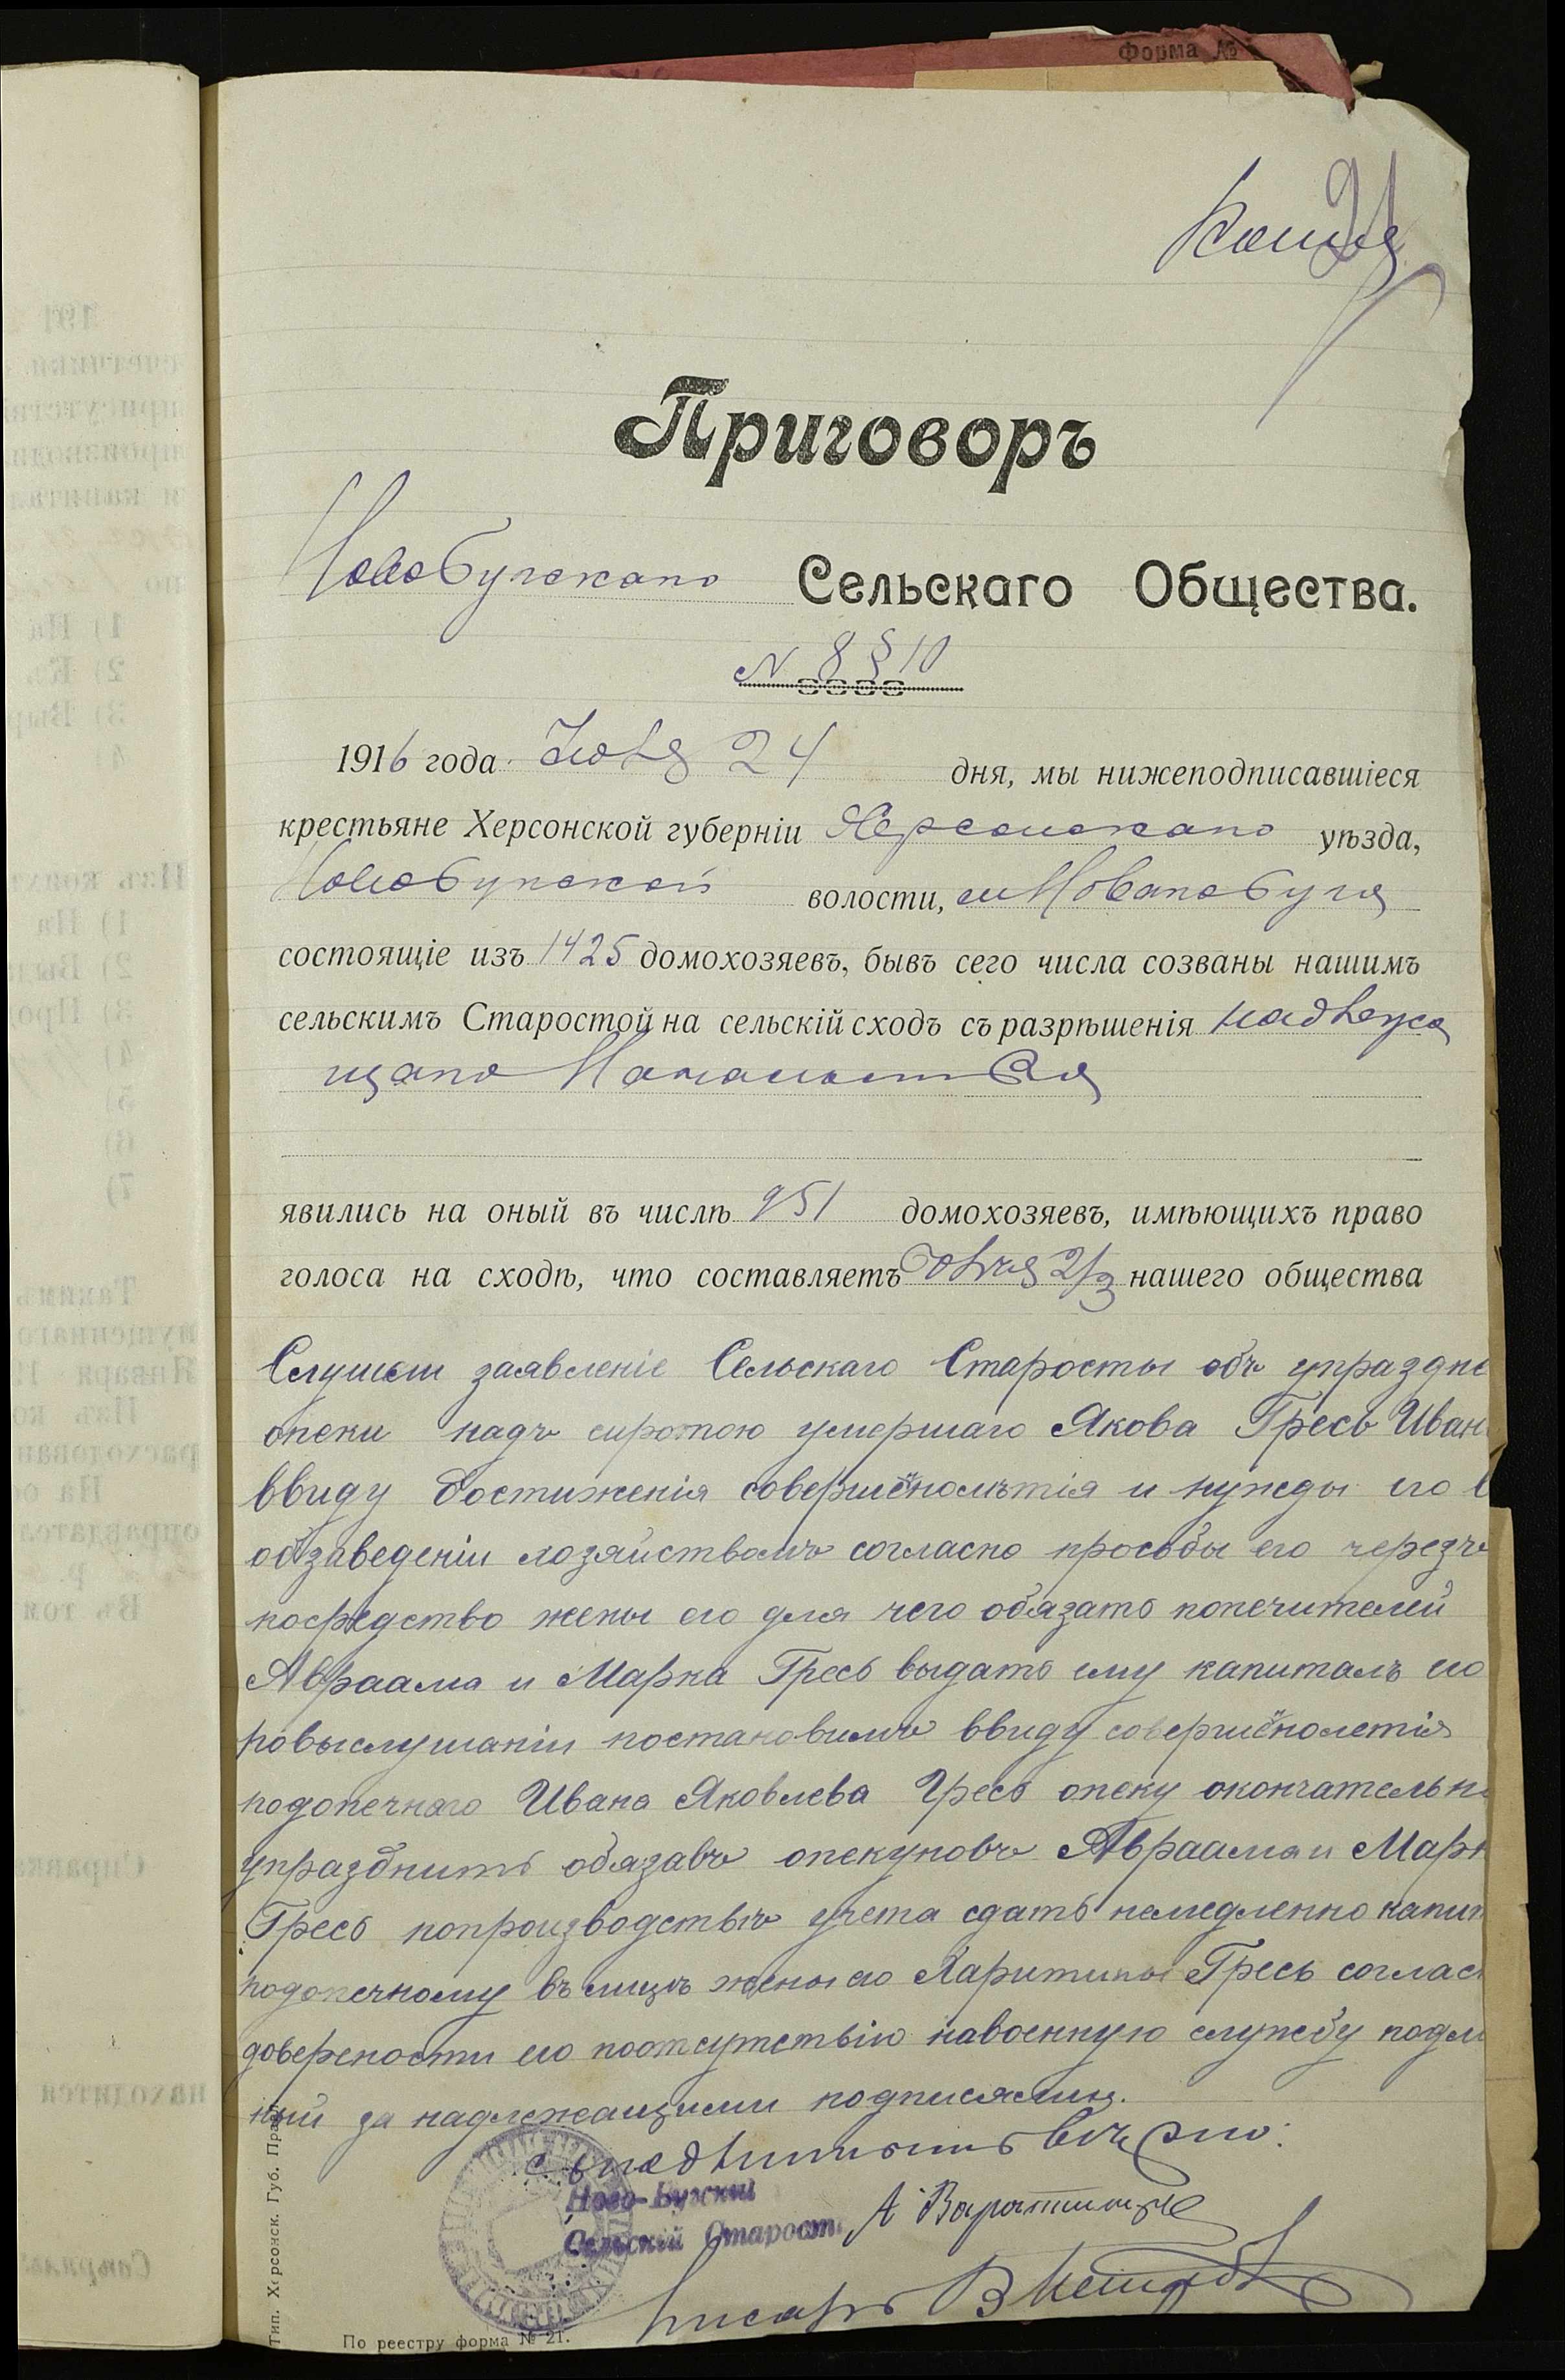 Форма №
Копія
Приговоръ
Новобугскаго Сельскаго Общества.
N 8 § 10
1916 года Іюля 24 дня, мы нижеподписавшіеся
крестьяне Херсонской губерніи Херсонскаго уѣзда,
Новобугской волости, м Новаго Буга
состоящіе изъ 1425 домохозяевъ, бывъ сего числа созваны нашимъ
сельскимъ Старостой на сельскій сходъ съ разрѣшенія надлежа
щаго Начальства
явились на оный въ числѣ 951 домохозяевъ, имѣющихъ право
голоса на сходѣ, что составляетъ 2/3 нашего общества
Слушали заявленіе Сельскаго Старосты объ упраздне
опеки надъ сиротою умершаго Якова Гресь Иван
ввиду достиженія совершенолѣтія и нужды его в
обзаведеніи хозяйствомъ согласно прособы его черезъ
посредство жены его для чего обязать попечителей
Авраама и Марка Гресь выдать ему капиталъ его
повыслушаніи постановили ввиду совершенолетія
подопечнаго Ивана Яковлева Гресь опеку окончательно
упразднить обязавъ опекуновъ Авраама и Марк
Гресь попроизводствѣ учета сдать немедленно капит
подопечному въ лицѣ жены его Харитины Гресь соглас
доверености его поотсутствію навоенную службу подли
ный за надлежащими подписями.
съ подлиннымъ вѣрно:
Ново-Бугскій
Сельскій Староста А
Писарь В
По реестру форма № 21.
Тип. Херсонск. Губ. Прав